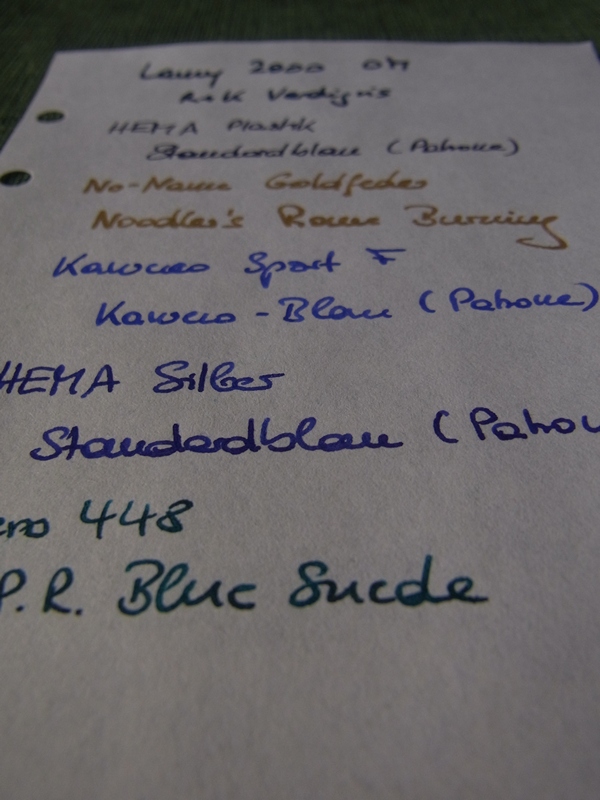 Lamy 2000 OM
R&K Verdigris
HEMA Plastik
Standardblau (Patrone)
No-Name Goldfeder
Noodler's Rome Burning
Kaweco Sport F
Kaweco-Blau (Patrone)
HEMA Silber
Standardblau (Patron
ero 448
P.R. Blue Suede